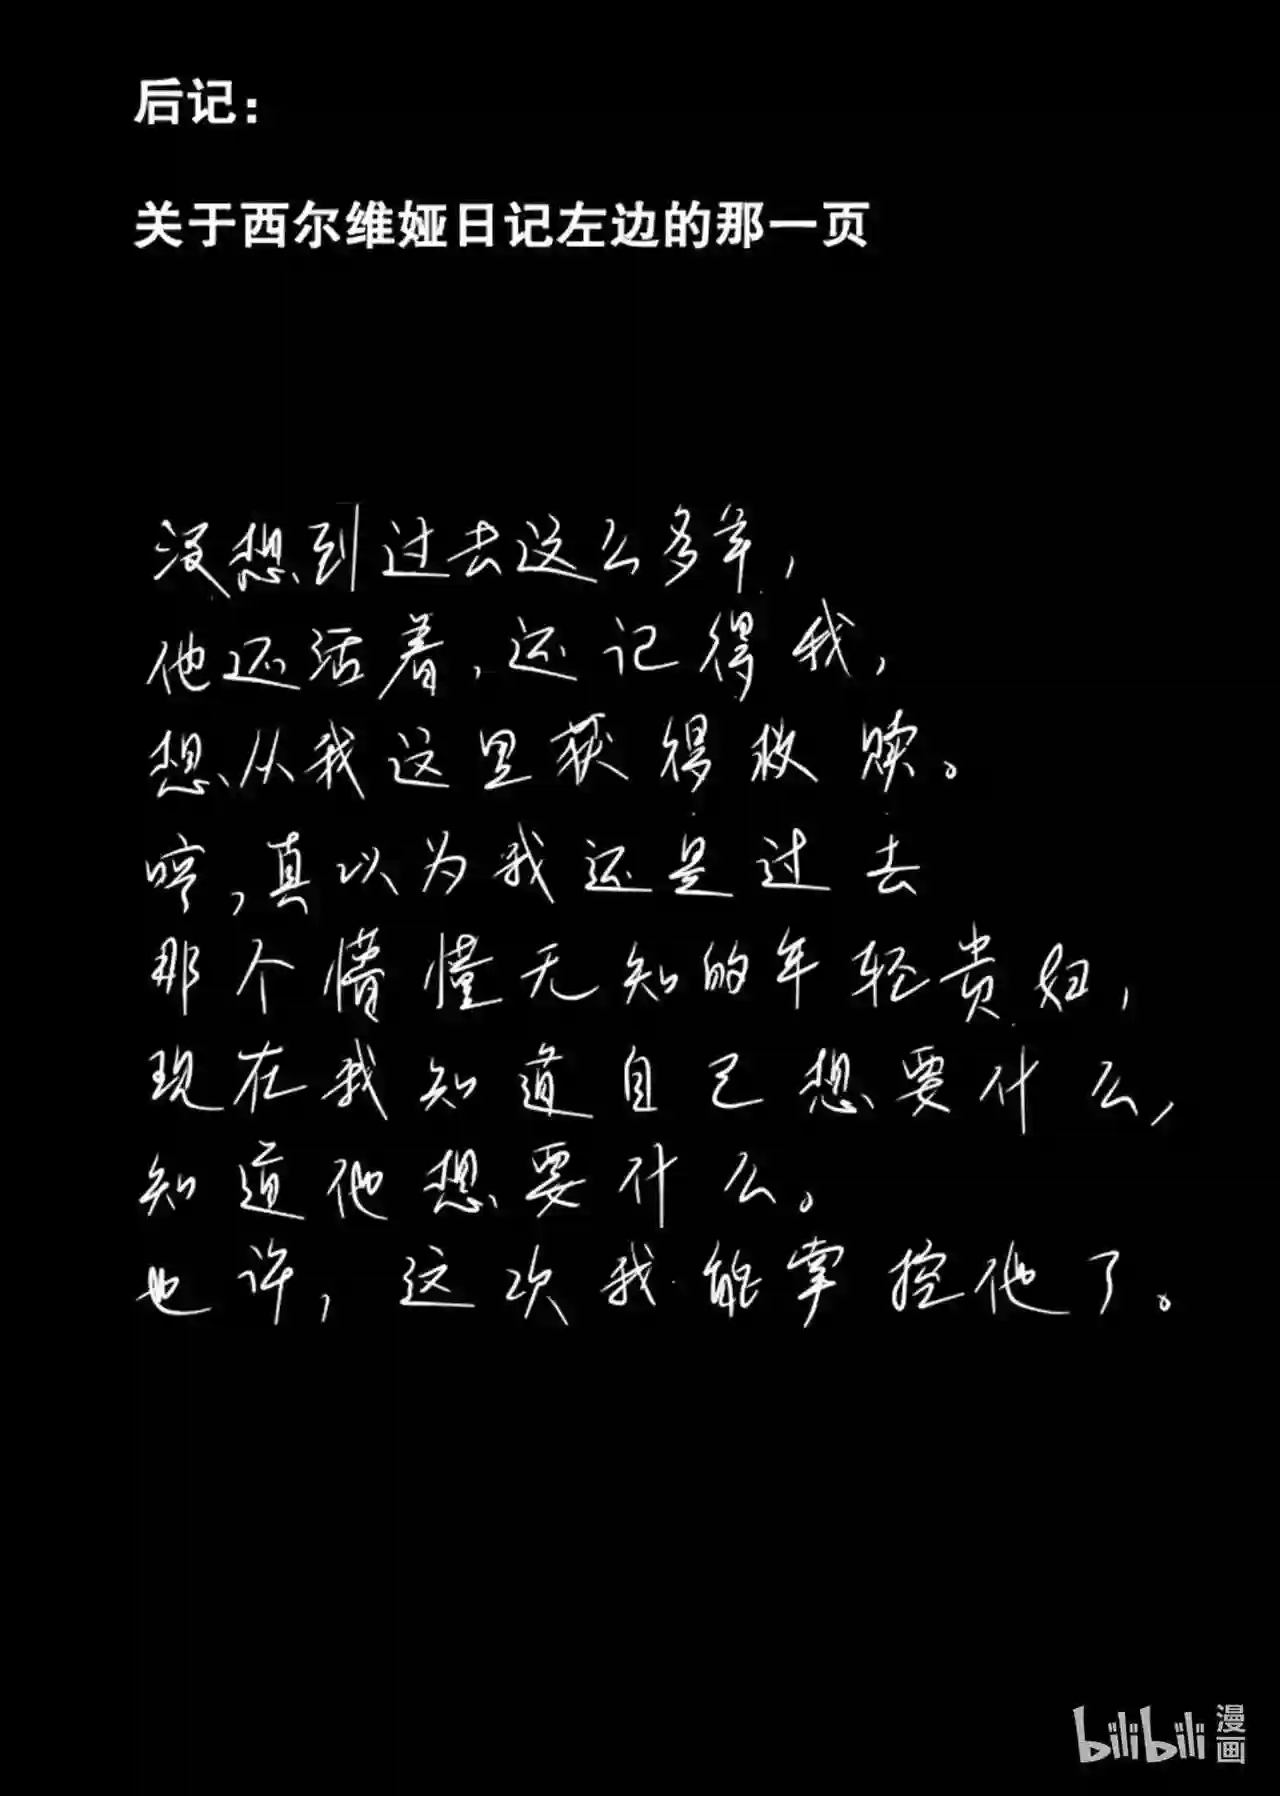 后记：
关于西尔维娅日记左边的那一页
没想到过去这么多年，
他还活着，还记得我，
想从我这里获得救赎。
哼，真以为我还是过去
那个懵懂无知的年轻贵妇，
现在我知道自己想要什么，
知道他想要什么。
也许，这次我能掌控他了。
bilibili 漫画